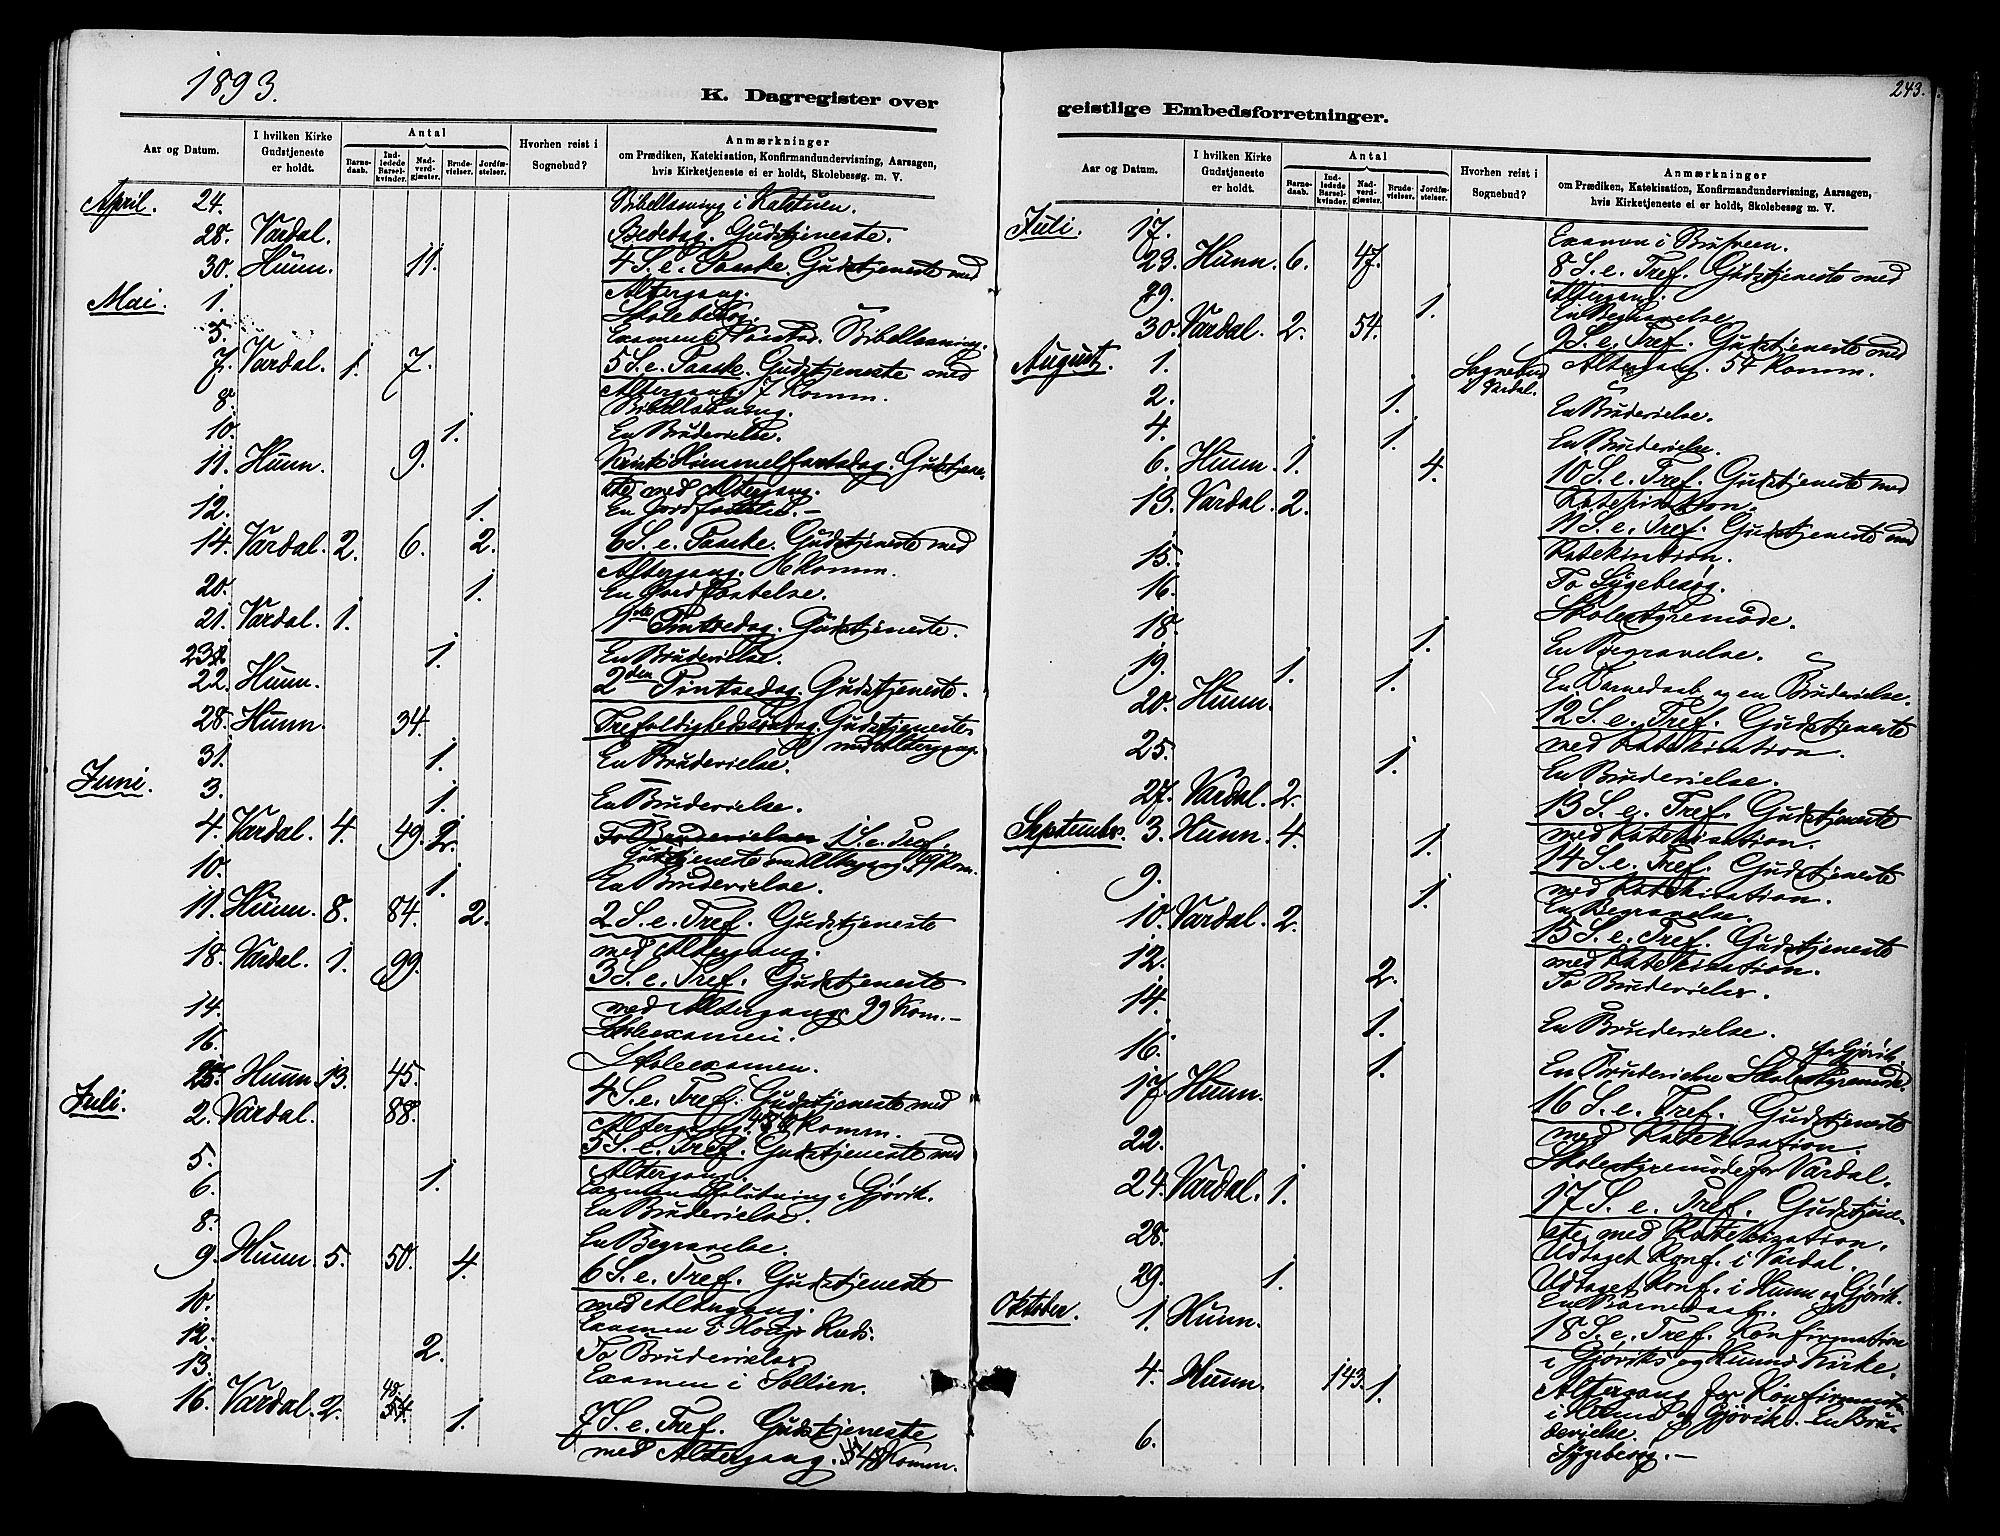 1893.
K. Dagregister over
Aar og Datum.
I hvilken Kirke Gudstjeneste er holdt.
Antal
Barnedaab.
Indledede Barselkvinder.
Nadverdgjæster.
Brudevielser.
Jordfæstelser.
Hvorhen reist i Sognebud?
Anmærkninger
om Prædiken, Katekisation, Konfirmandundervisning, Aarsagen,
hvis Kirketjeneste ei er holdt, Skolebesøg m. V.
April. 24. Bibellæsning i
28. Vardal. Bededag. Gudstjeneste.
30. Hunn. 11. 4 S. e. Paaske. Gudstjeneste med
Altergang.
Mai. 1. Skolebesøg.
5. Examen Bibellæsning.
7. Vardal. 1. 7. 5 S. e. Paaske. Gudstjeneste med
Altergang 7 Komm.
8. Bibellæsning.
10. 1. En Brudevielse.
11. Hunn. 9. Kristi Himmelfartsdag. Gudstjene-
ste med Altergang.
12. 1. En Jordfæstelse. –
14. Vardal. 2. 6. 2. 6 S. e. Paaske. Gudstjeneste med
Altergang. Komm.
20. 1. En Jordfæstelse.
21. Vardal. 1. 1ste Pintsedag. Gudstjeneste.
23. 1. En Brudevielse.
22. Hunn. 2den Pintsedag. Gudstjeneste.
28. Hunn. 34. Trefoldighedssøndag. Gudstjeneste
med Altergang.
31. 1. En Brudevielse.
Juni. 3. 1. En Brudevielse.
4. Vardal. 4. 49. 2. To Brudevielser 1 S. e. Tref.
Gudstjeneste med Altergang 49 Kom.
10. 1. En Brudevielse.
11. Hunn. 8. 84. 2. 2 S. e. Tref. Gudstjeneste
med Altergang.
18. Vardal. 1. 99. 3 S. e. Tref. Gudstjeneste
med Altergang. 99 Kom. –
14. Skoleexamen.
16. Skoleexamen.
25. Hunn. 13. 45. 4 S. e. Tref. Gudstjeneste med
Altergang. 45 Komm.
Juli. 2. Vardal. 88. 5 S. e. Tref. Gudstjeneste med
Altergang.
5. Examensslutning i Gjøvik.
6. 1. En Brudevielse.
8. En Begravelse.
9. Hunn. 5. 50. 4. 6 S. e. Tref. Gudstjeneste
med Altergang.
10. Examen i
12. 2. To Brudevielser
13. Examen i
16. Vardal. 2. 48. 1. 7 S. e. Tref. Gudstjeneste
med Altergang. 48 Komm.
243.
geistlige Embedsforretninger.
Aar og Datum.
I hvilken Kirke Gudstjeneste er holdt.
Antal
Barnedaab.
Indledede Barselkvinder.
Nadverdgjæster.
Brudevielser.
Jordfæstelser.
Hvorhen reist i Sognebud?
Anmærkninger
om Prædiken, Katekisation, Konfirmandundervisning, Aarsagen,
hvis Kirketjeneste ei er holdt, Skolebesøg m. V.
Juli. 17. Examen i
23. Hunn. 6. 47. 8 S. e. Tref. Gudstjeneste med
Altergang.
29. 1. En Begravelse
30. Vardal. 2. 54. 9 S. e. Tref. Gudstjeneste med
Altergang. 54 Komm.
August. 1. Sognebud i Vardal.
2. 1. En Brudevielse.
4. 1. En Brudevielse.
6. Hunn. 1. 4. 10 S. e. Tref. Gudstjeneste med
Katekisation.
13. Vardal. 2. 11 S. e. Tref. Gudstjeneste med
Katekisation.
15. To Sygebesøg.
16. Skolestyremøde.
18. 1. En Begravelse.
19. 1. 1. En Barnedaab og en Brudevielse.
20. Hunn. 12 S. e. Tref. Gudstjeneste
med Katekisation.
25. 1. En Brudevielse.
27. Vardal. 2. 13 S. e. Tref. Gudstjeneste
med Katekisation.
September. 3. Hunn. 4. 1. 14 S. e. Tref. Gudstjeneste
med Katekisation.
9. 1. En Begravelse.
10. Vardal. 2. 15 S. e. Tref. Gudstjeneste
med Katekisation.
12. 2. To Brudevielser.
14. 1. En Brudevielse.
16. 1. En Brudevielse Skolestyremøde
for Gjøvik.
17. Hunn. 16 S. e. Tref. Gudstjeneste
med Katekisation.
22. Skolestyremøde for Vardal.
24. Vardal. 1. 17 S. e. Tref. Gudstjene-
ste med Katekisation.
28. Udtaget Konf. i Vardal.
29. 1. Udtaget Konf. i Hunn og Gjøvik.
En Barnedaab.
Oktober. 1. Hunn. 18 S. e. Tref. Konfirmation
i Gjøviks og Hunns Kirke.
4. Hunn. 143. 1. Altergang for Konfirmanter
i Hunn og Gjøvik. En Bru-
devielse.
6. Sygebesøg. –